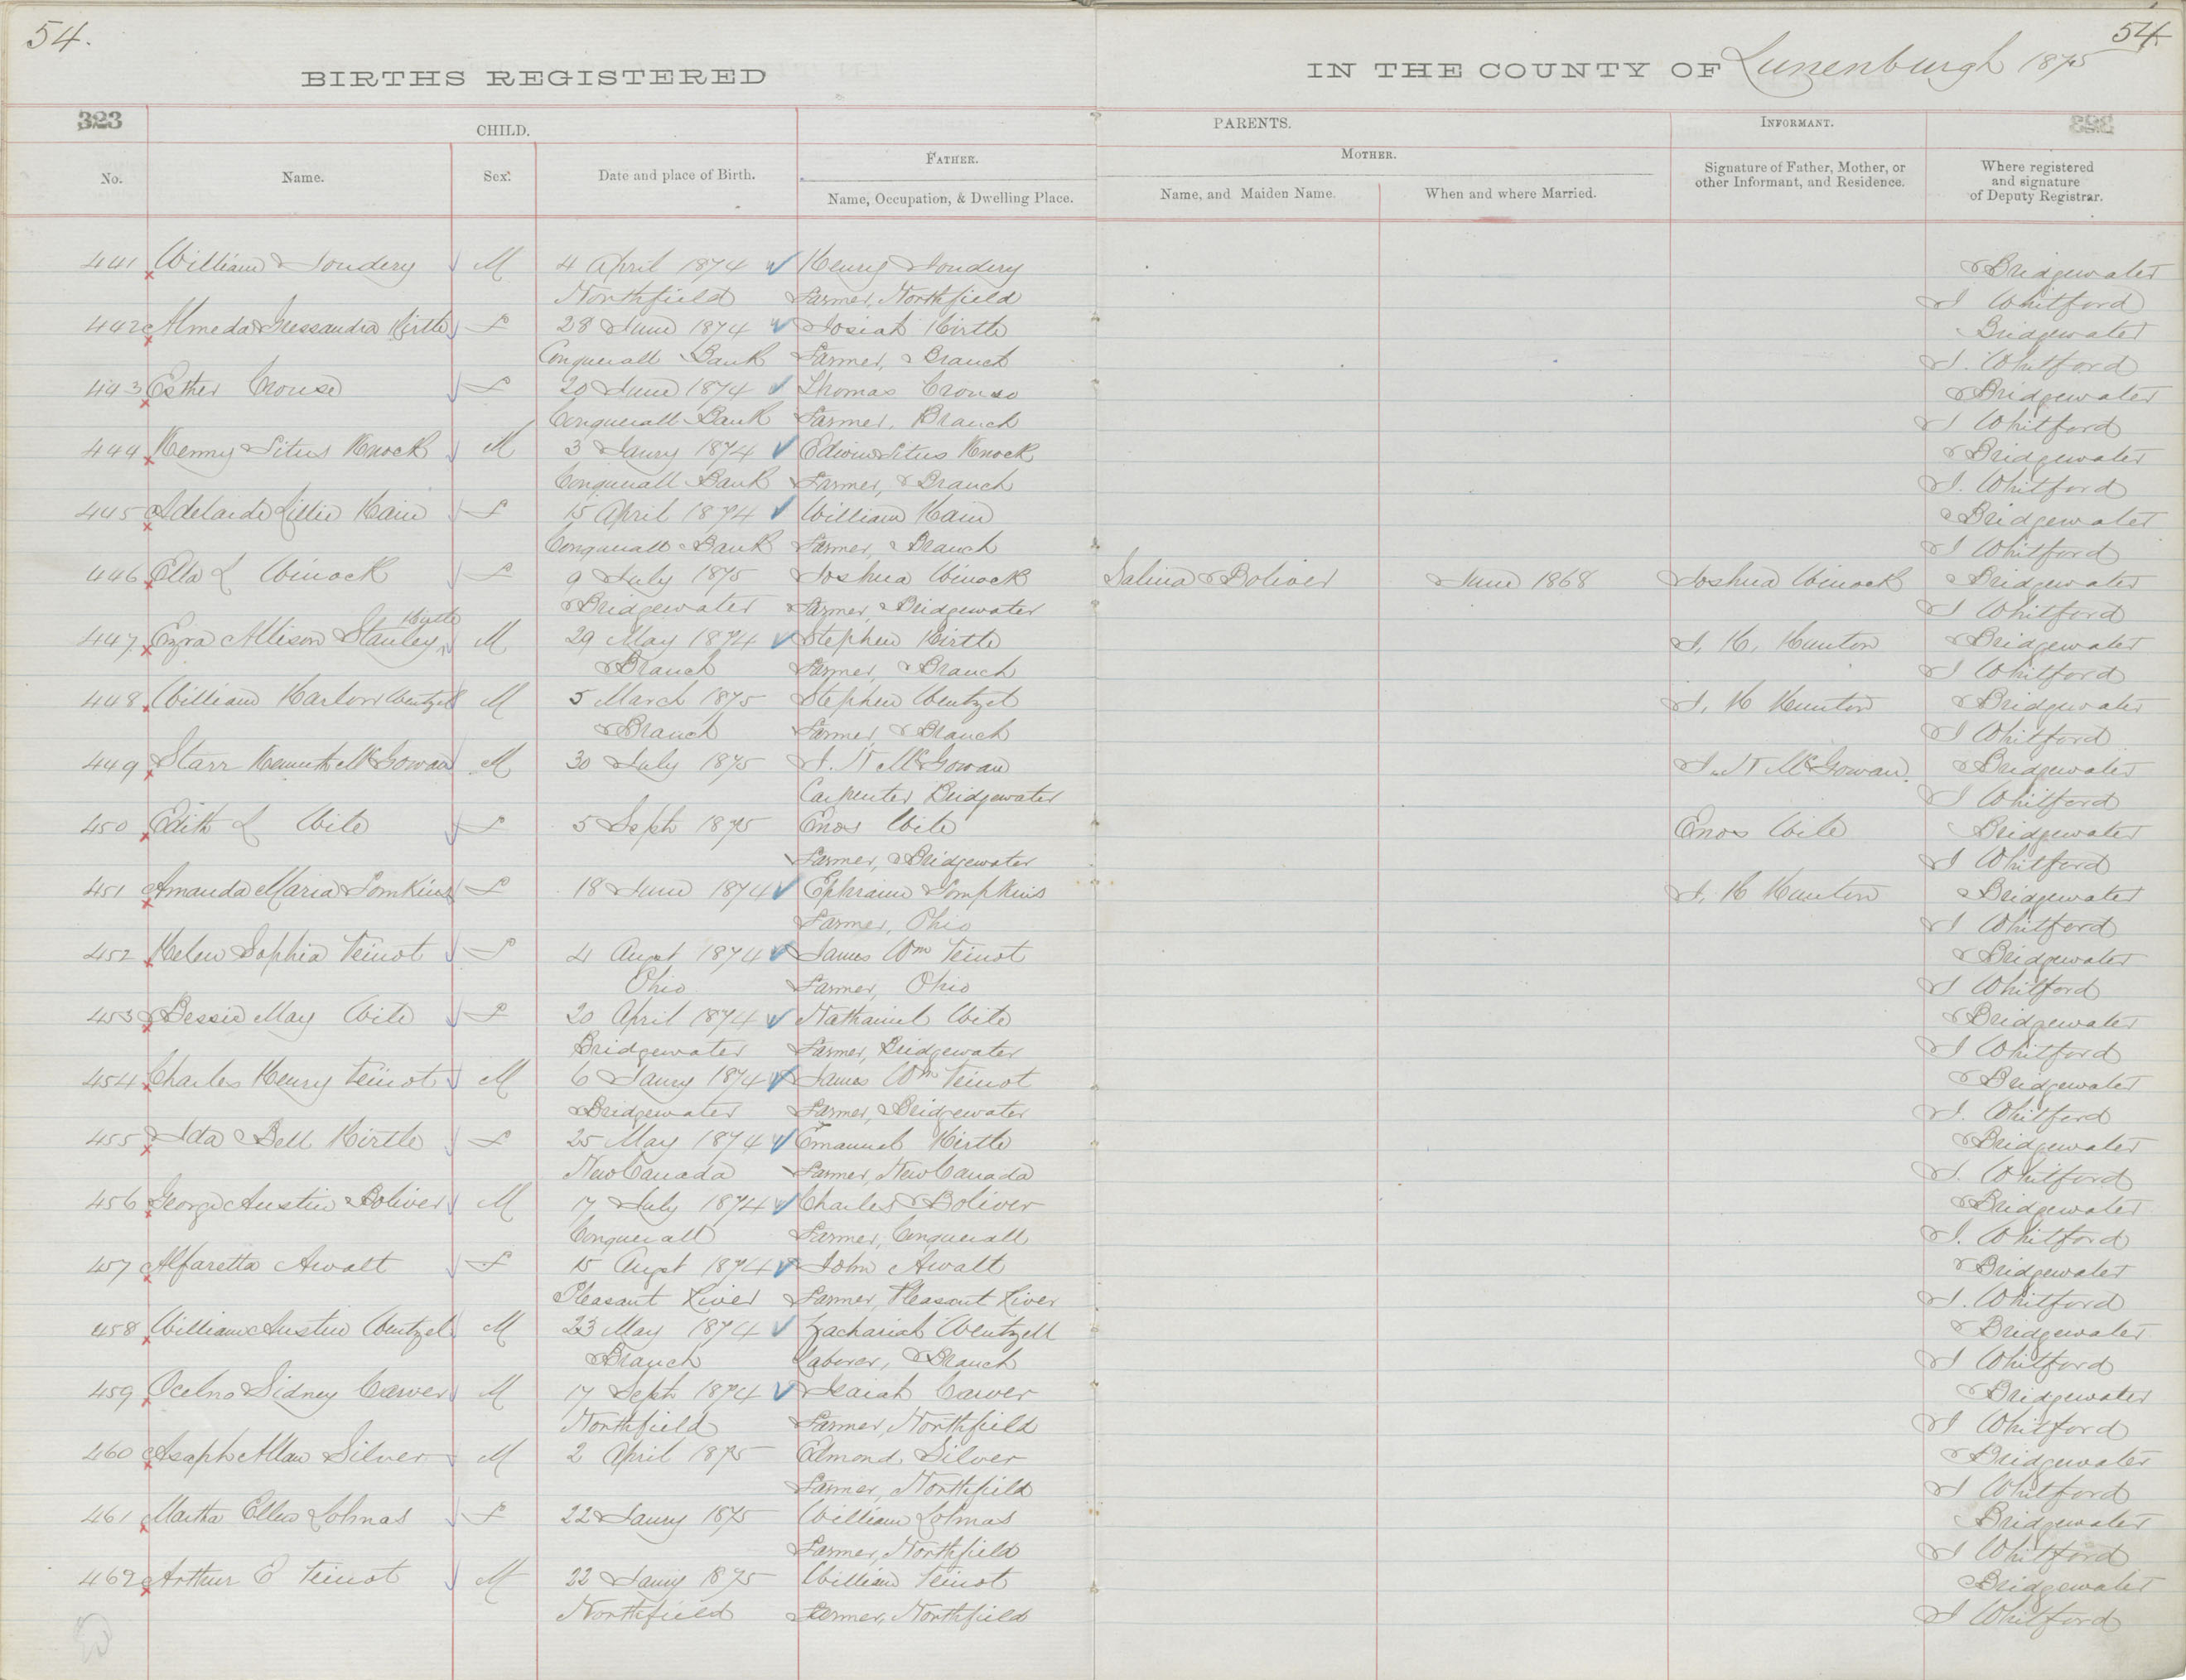 54.
54
BIRTHS REGISTERED
IN THE COUNTY OF Lunenburgh 1875
323
CHILD.
PARENTS.
INFORMANT.
No.
Name.
Sex.
Date and place of Birth.
FATHER.
Name, Occupation, & Dwelling Place.
MOTHER.
Name, and Maiden Name.
When and where Married.
Signature of Father, Mother, or
other Informant, and Residence.
Where registered
and signature
of Deputy Registrar.
441 William M 4 April 1874 Henry Bridgewater
Northfield Farmer, Northfield I Whitford
442 Almeda Hirtle F 28 June 1874 Josiah Hirtle Bridgewater
Conquerall Bank Farmer, Branch I. Whitford
443 Esther Crouse F 20 June 1874 Thomas Crouse Bridgewater
Conquerall Bank Farmer, Branch I Whitford
444 Henry Titus Knock M 3 Janry 1874 Edwin Titus Knock Bridgewater
Conquerall Bank Farmer, Branch I. Whitford
445 Adelaide Lillie Hain F 15 April 1874 William Hain Bridgewater
Conquerall Bank Farmer, Branch I Whitford
446 Ella L Winock F 9 July 1875 Joshua Winock Salina Boliver June 1868 Joshua Winock Bridgewater
Bridgewater Farmer, Bridgewater I Whitford
447 Ezra Allison Stanley Hirtle M 29 May 1874 Stephen Hirtle Bridgewater
Branch Farmer, Branch I Whitford
448 William Harlow Wentzel M 5 March 1875 Stephen Wentzel Bridgewater
Branch Farmer, Branch I Whitford
449 Starr Kenneth McGowan M 30 July 1875 McGowan McGowan. Bridgewater
Carpenter Bridgewater I Whitford
450 Edith L Wile F 5 Sept 1875 Enos Wile Enos Wile Bridgewater
Farmer, Bridgewater I Whitford
451 Amanda Maria Tomkins F 18 June 1874 Ephraim Tompkins Bridgewater
Farmer, Ohio I Whitford
452 Helen Sophia Veinot F 4 Augt 1874 James Wm Veinot Bridgewater
Ohio Farmer, Ohio I Whitford
453 Bessie May Wile F 20 April 1874 Nathaniel Wile Bridgewater
Bridgewater Farmer, Bridgewater I Whitford
454 Charles Henry Veinot M 6 Janry 1874 James Wm Veinot Bridgewater
Bridgewater Farmer, Bridgewater I. Whitford
455 Ida Bell Hirtle F 25 May 1874 Emanuel Hirtle Bridgewater
New Canada Farmer, New Canada I. Whitford
456 George Austin Boliver M 17 July 1874 Charles Boliver Bridgewater
Conquerall Farmer, Conquerall I. Whitford
457 Alfaretta Awalt F 15 Augt 1874 John Awalt Bridgewater
Pleasant River Farmer, Pleasant River I. Whitford
458 William Austin Wentzel M 23 May 1874 Zachariah Wentzell Bridgewater
Branch Laborer, Branch I Whitford
459 Sidney Carver M 17 Sept 1874 Isaiah Carver Bridgewater
Northfield Farmer, Northfield I Whitford
460 Asaph Allan Silver M 2 April 1875 Edmond Silver Bridgewater
Farmer, Northfield I Whitford
461 Martha Ellen Lohnas F 22 Janry 1875 William Lohnas Bridgewater
Farmer, Northfield I Whitford
462 Arthur E Veinot M 22 Janry 1875 William Veinot Bridgewater
Northfield Farmer, Northfield I Whitford